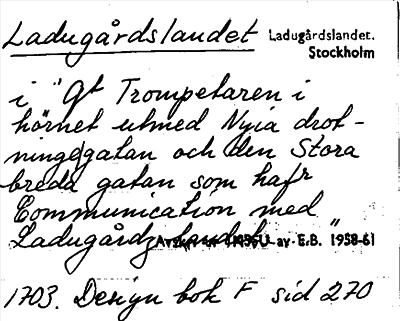 Ladugårdslandet Ladugårdslandet.
Stockholm
i "Qt Trompetaren i
hörnet utmed Nyia drot-
ninggatan och den Stora
breda gatan som hafr
Communication med
Ladugårdz landet" av E.B. 1958-61
1703. Design bok F sid 270